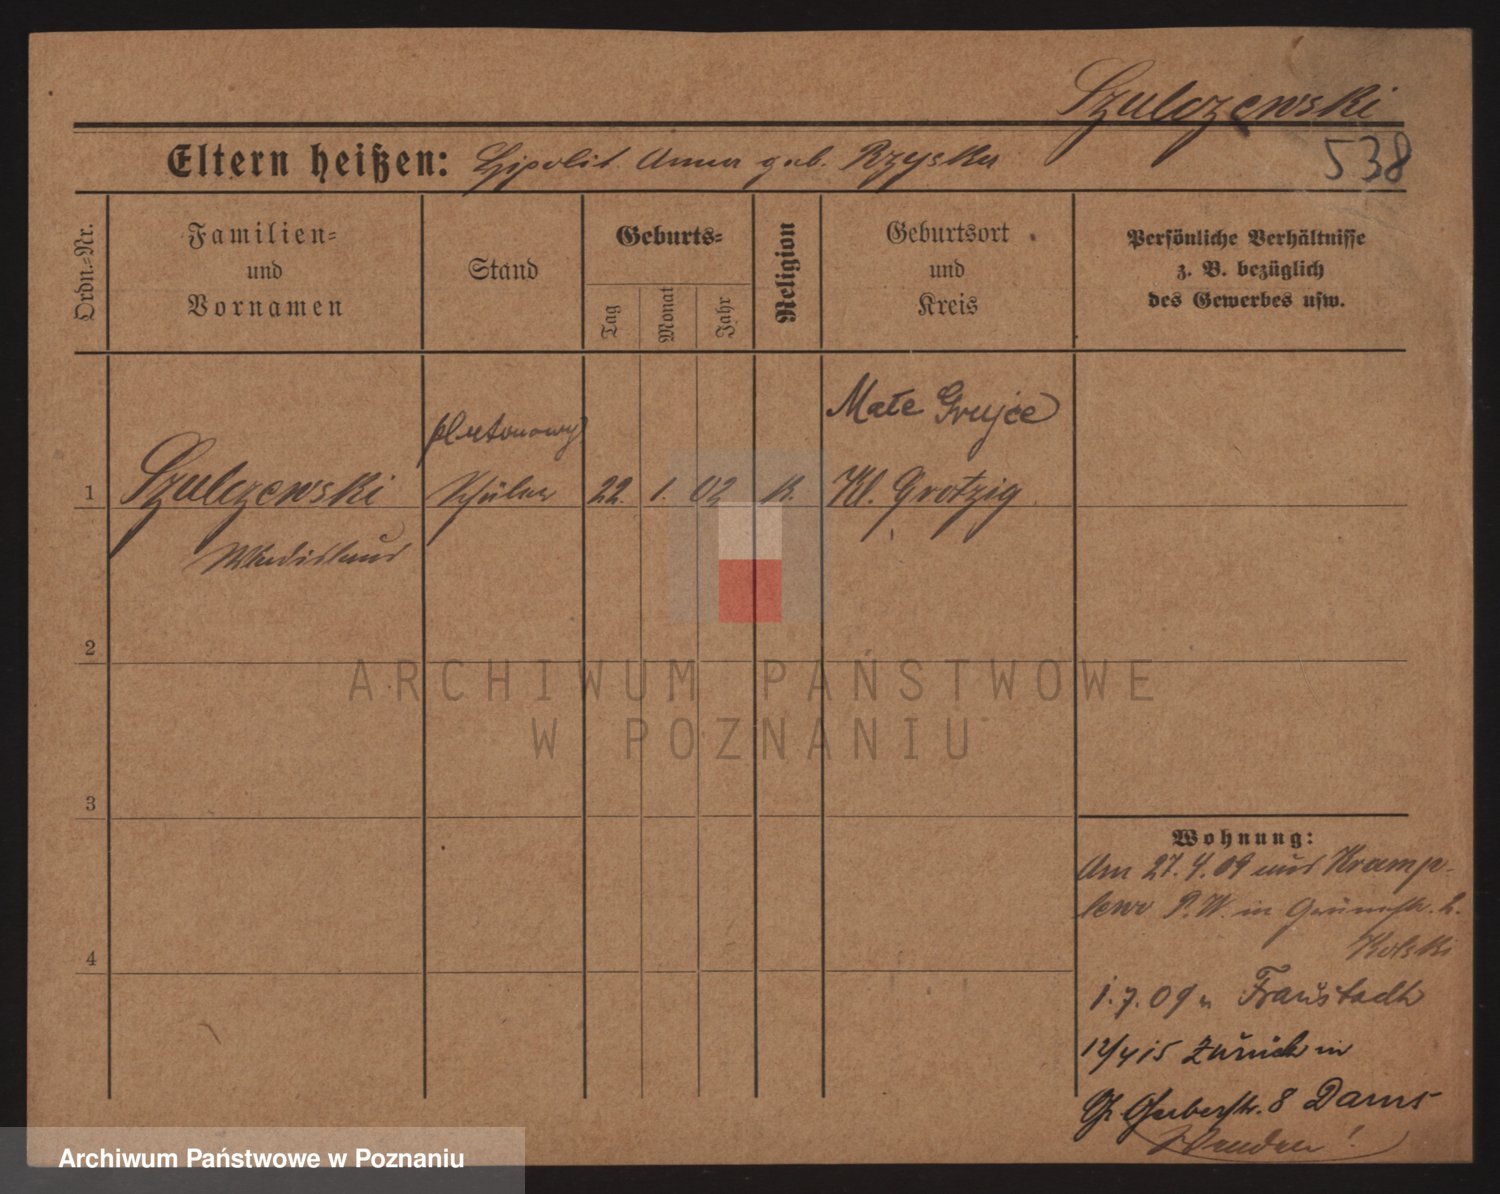 Szulczewski
538
Eltern heißen: Hipolit Anna geb. Rzyska
Ordn.=Nr.
Familien=
und
Vornamen
Stand
Geburts=
Tag
Monat
Jahr
Religion
Geburtsort
und
Kreis
Persönliche Verhältnisse
z. B. bezüglich
des Gewerbes usw.
plutonowy
Małe Grujce
1 Szulczewski Schüler 22. 1. 02 K. Kl. Grotzig
Wladislaus
2
3
4
Wohnung:
Am 27. 4. 09 aus Kramp-
lewo P. W. in Grünestr. 2.
Kolski
1. 7. 09 n Fraustadt
12/4 15 zurück in
Gr. Gerberstr. 8 Dams
Wenden!
ARCHIWUM PAŃSTWOWE
W POZNANIU
Archiwum Państwowe w Poznaniu